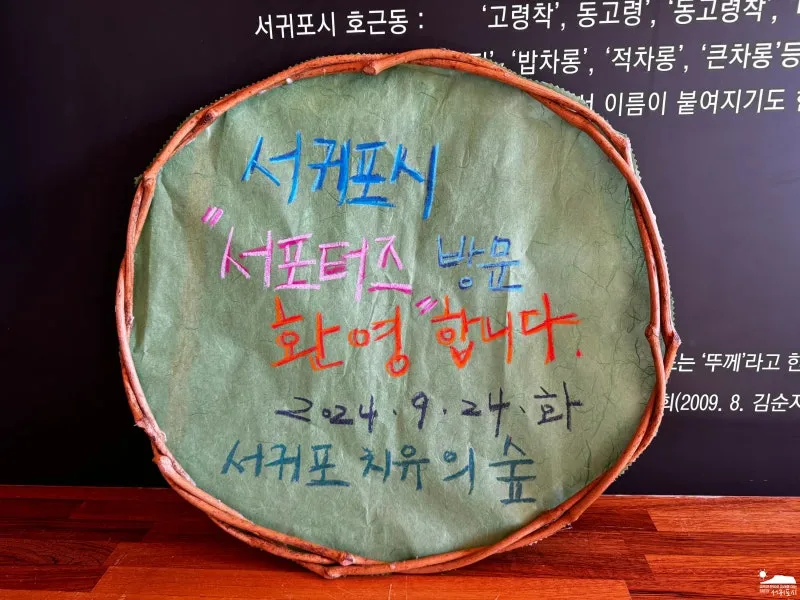 서귀포시 호근동 : '고령착', 동고령', '동고령착',
'밥차롱', '적차롱', '큰차롱'등
이름이 붙여지기도
서귀포시
"서포터즈 방문
환영" 합니다.
2024. 9. 24. 화
서귀포 치유의 숲
는 '뚜께'라고
회(2009. 8. 김순자
서귀포시